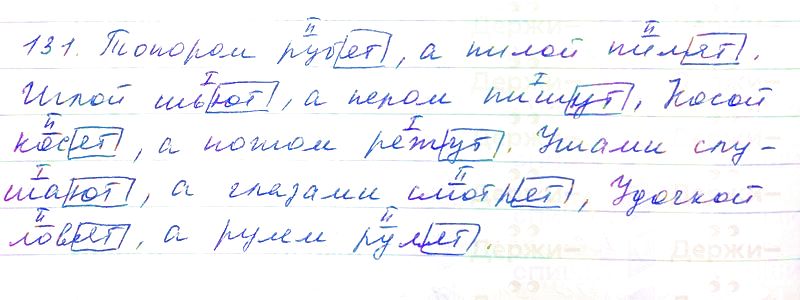 II II
131. Топором рубят, а пилой пилят.
I I
Иглой шьют, а пером пишут. Косой
II I
косят, а ножом режут. Ушами слу-
I II
шают, а глазами смотрят. Удочкой
II II
ловят, а рулем рулят.